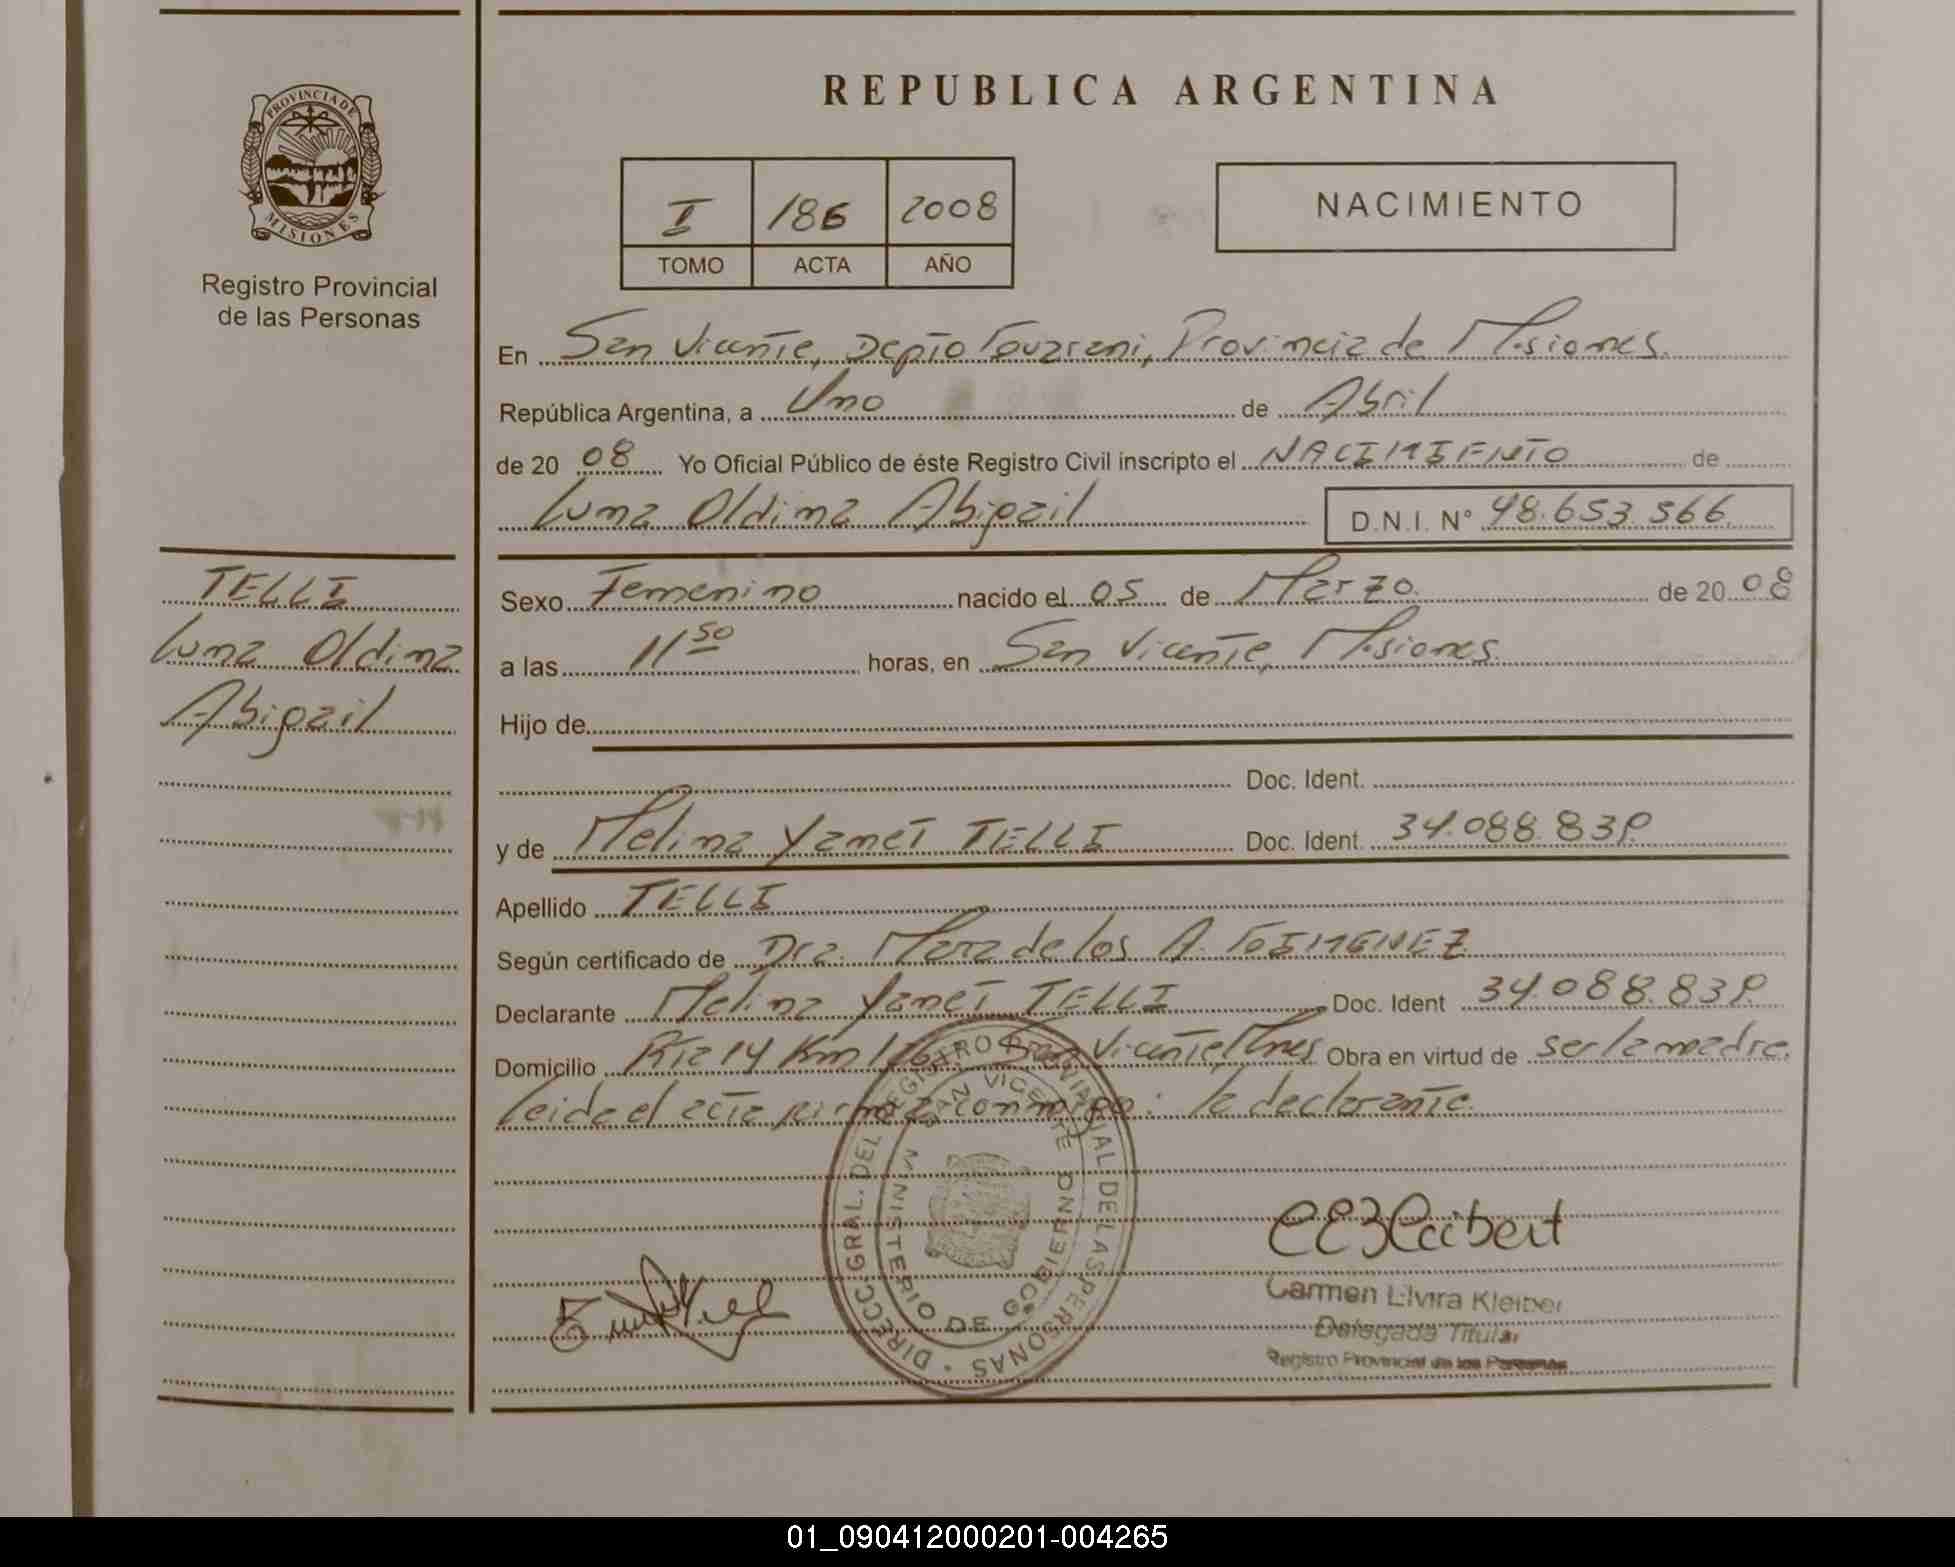 REPUBLICA ARGENTINA
PROVINCIA DE
MISIONES
Registro Provincial
de las Personas
I 186 2008
TOMO ACTA AÑO
NACIMIENTO
En San Vicente, Depto Guarani, Provincia de Misiones.
República Argentina, a Uno de Abril
de 20 08 Yo Oficial Público de éste Registro Civil inscripto el NACIMIENTO de
Luna Oldina Abigail D.N.I. N° 48.653.566
TELLI
Luna Oldina
Abigail
Sexo Femenino nacido el 05 de Marzo de 20 08
a las 11 50 horas, en San Vicente, Misiones
Hijo de
Doc. Ident.
y de Melina Yanet TELLI Doc. Ident. 34.088.839
Apellido TELLI
Según certificado de Dra. Maria de los A. GIMENEZ
Declarante Melina Yanet TELLI Doc. Ident 34.088.839
Domicilio Rta 14 Km San Vicente Mnes Obra en virtud de ser la madre.
Leida el acta firma conmigo: la declarante.
DIRECC. GRAL. DEL REGISTRO PROVINCIAL DE LAS PERSONAS
SAN VICENTE
MINISTERIO DE GOBIERNO
Carmen Elvira Kleiber
Delegada Titular
Registro Provincial de las Personas
01_090412000201-004265